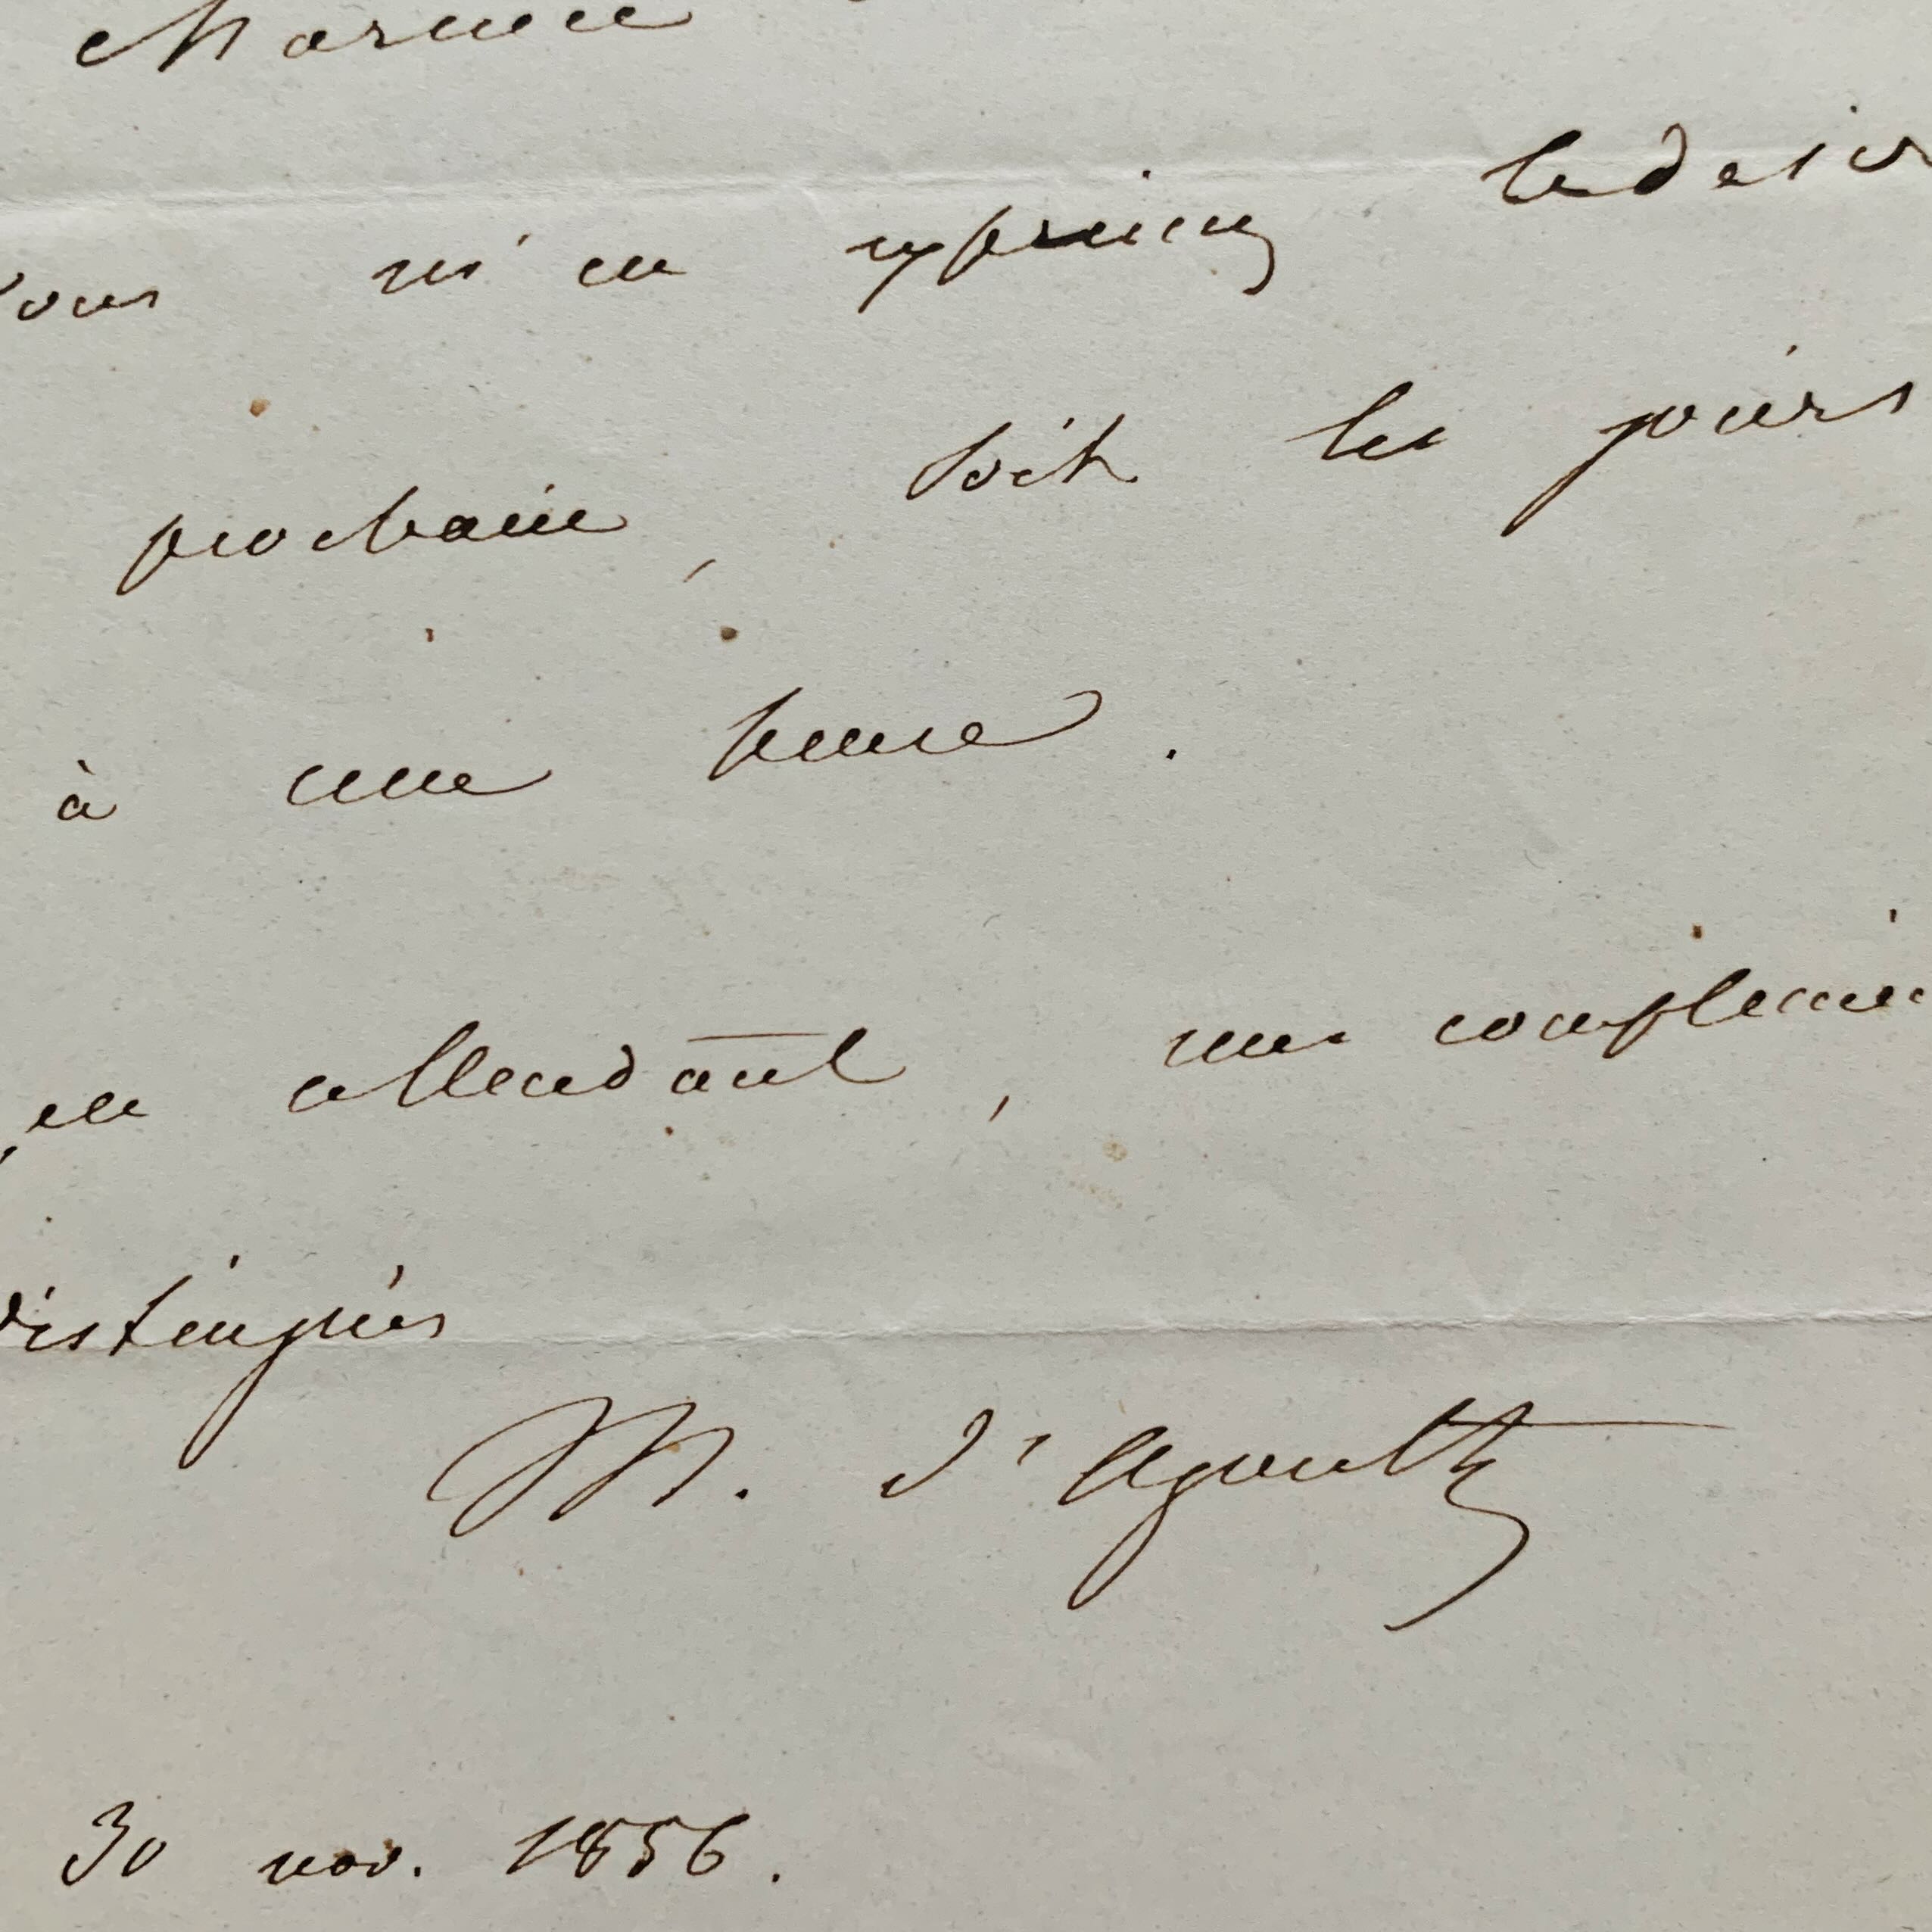 charmée
vous m'en exprimez le desir
prochain, soit les jours
à une heure.
en attendant, mes complimen
distingués
M. d'Agoult
30 nov. 1856.